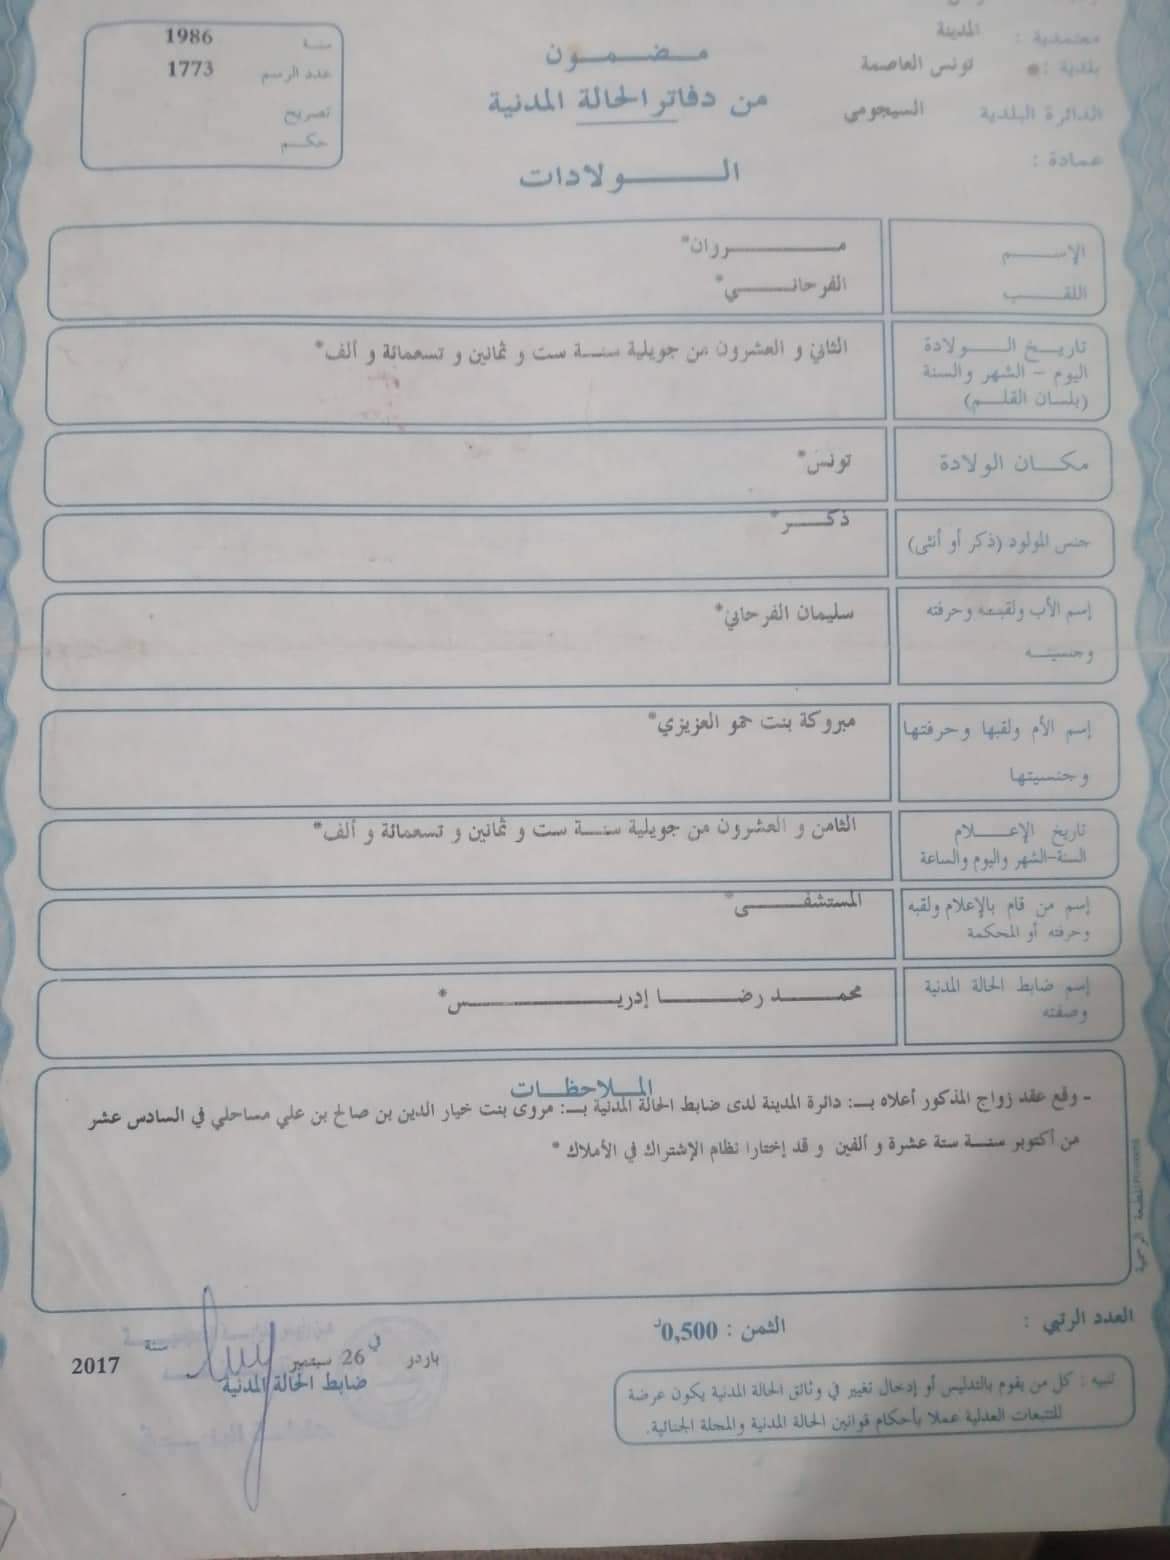 معتمدية : المدينة
بلدية : تونس العاصمة
الدائرة البلدية السيجومي
عمادة :
مضمون
من دفاتر الحالة المدنية
الولادات
سنة 1986
عدد الرسم 1773
تصريح
حكم
الإسم مروان*
اللقب الفرحاني*
تاريخ الولادة
اليوم - الشهر والسنة
(بلسان القلم)
الثاني و العشرون من جويلية سنة ست و ثمانين و تسعمائة و ألف*
مكان الولادة تونس*
جنس المولود (ذكر أو أنثى) ذكر*
إسم الأب ولقبه وحرفته
وجنسيته
سليمان الفرحاني*
إسم الأم ولقبها وحرفتها
وجنسيتها
مبروكة بنت حمو العزيزي*
تاريخ الإعلام
السنة-الشهر واليوم والساعة
الثامن و العشرون من جويلية سنة ست و ثمانين و تسعمائة و ألف*
إسم من قام بالإعلام ولقبه
وحرفته أو المحكمة
المستشفى*
إسم ضابط الحالة المدنية
وصفته
محمد رضا إدريس*
الملاحظات
- وقع عقد زواج المذكور أعلاه بـ: دائرة المدينة لدى ضابط الحالة المدنية بـ: مروى بنت خيار الدين بن صالح بن علي مساحلي في السادس عشر
من أكتوبر سنة ستة عشرة و ألفين و قد إختارا نظام الإشتراك في الأملاك *
المطبعة الرسمية
العدد الرتبي :
الثمن : 0,500د
باردو في 26 سبتمبر سنة 2017
ضابط الحالة المدنية
تنبيه : كل من يقوم بالتدليس أو إدخال تغيير في وثائق الحالة المدنية يكون عرضة
للتتبعات العدلية عملا بأحكام قوانين الحالة المدنية والمجلة الجنائية.